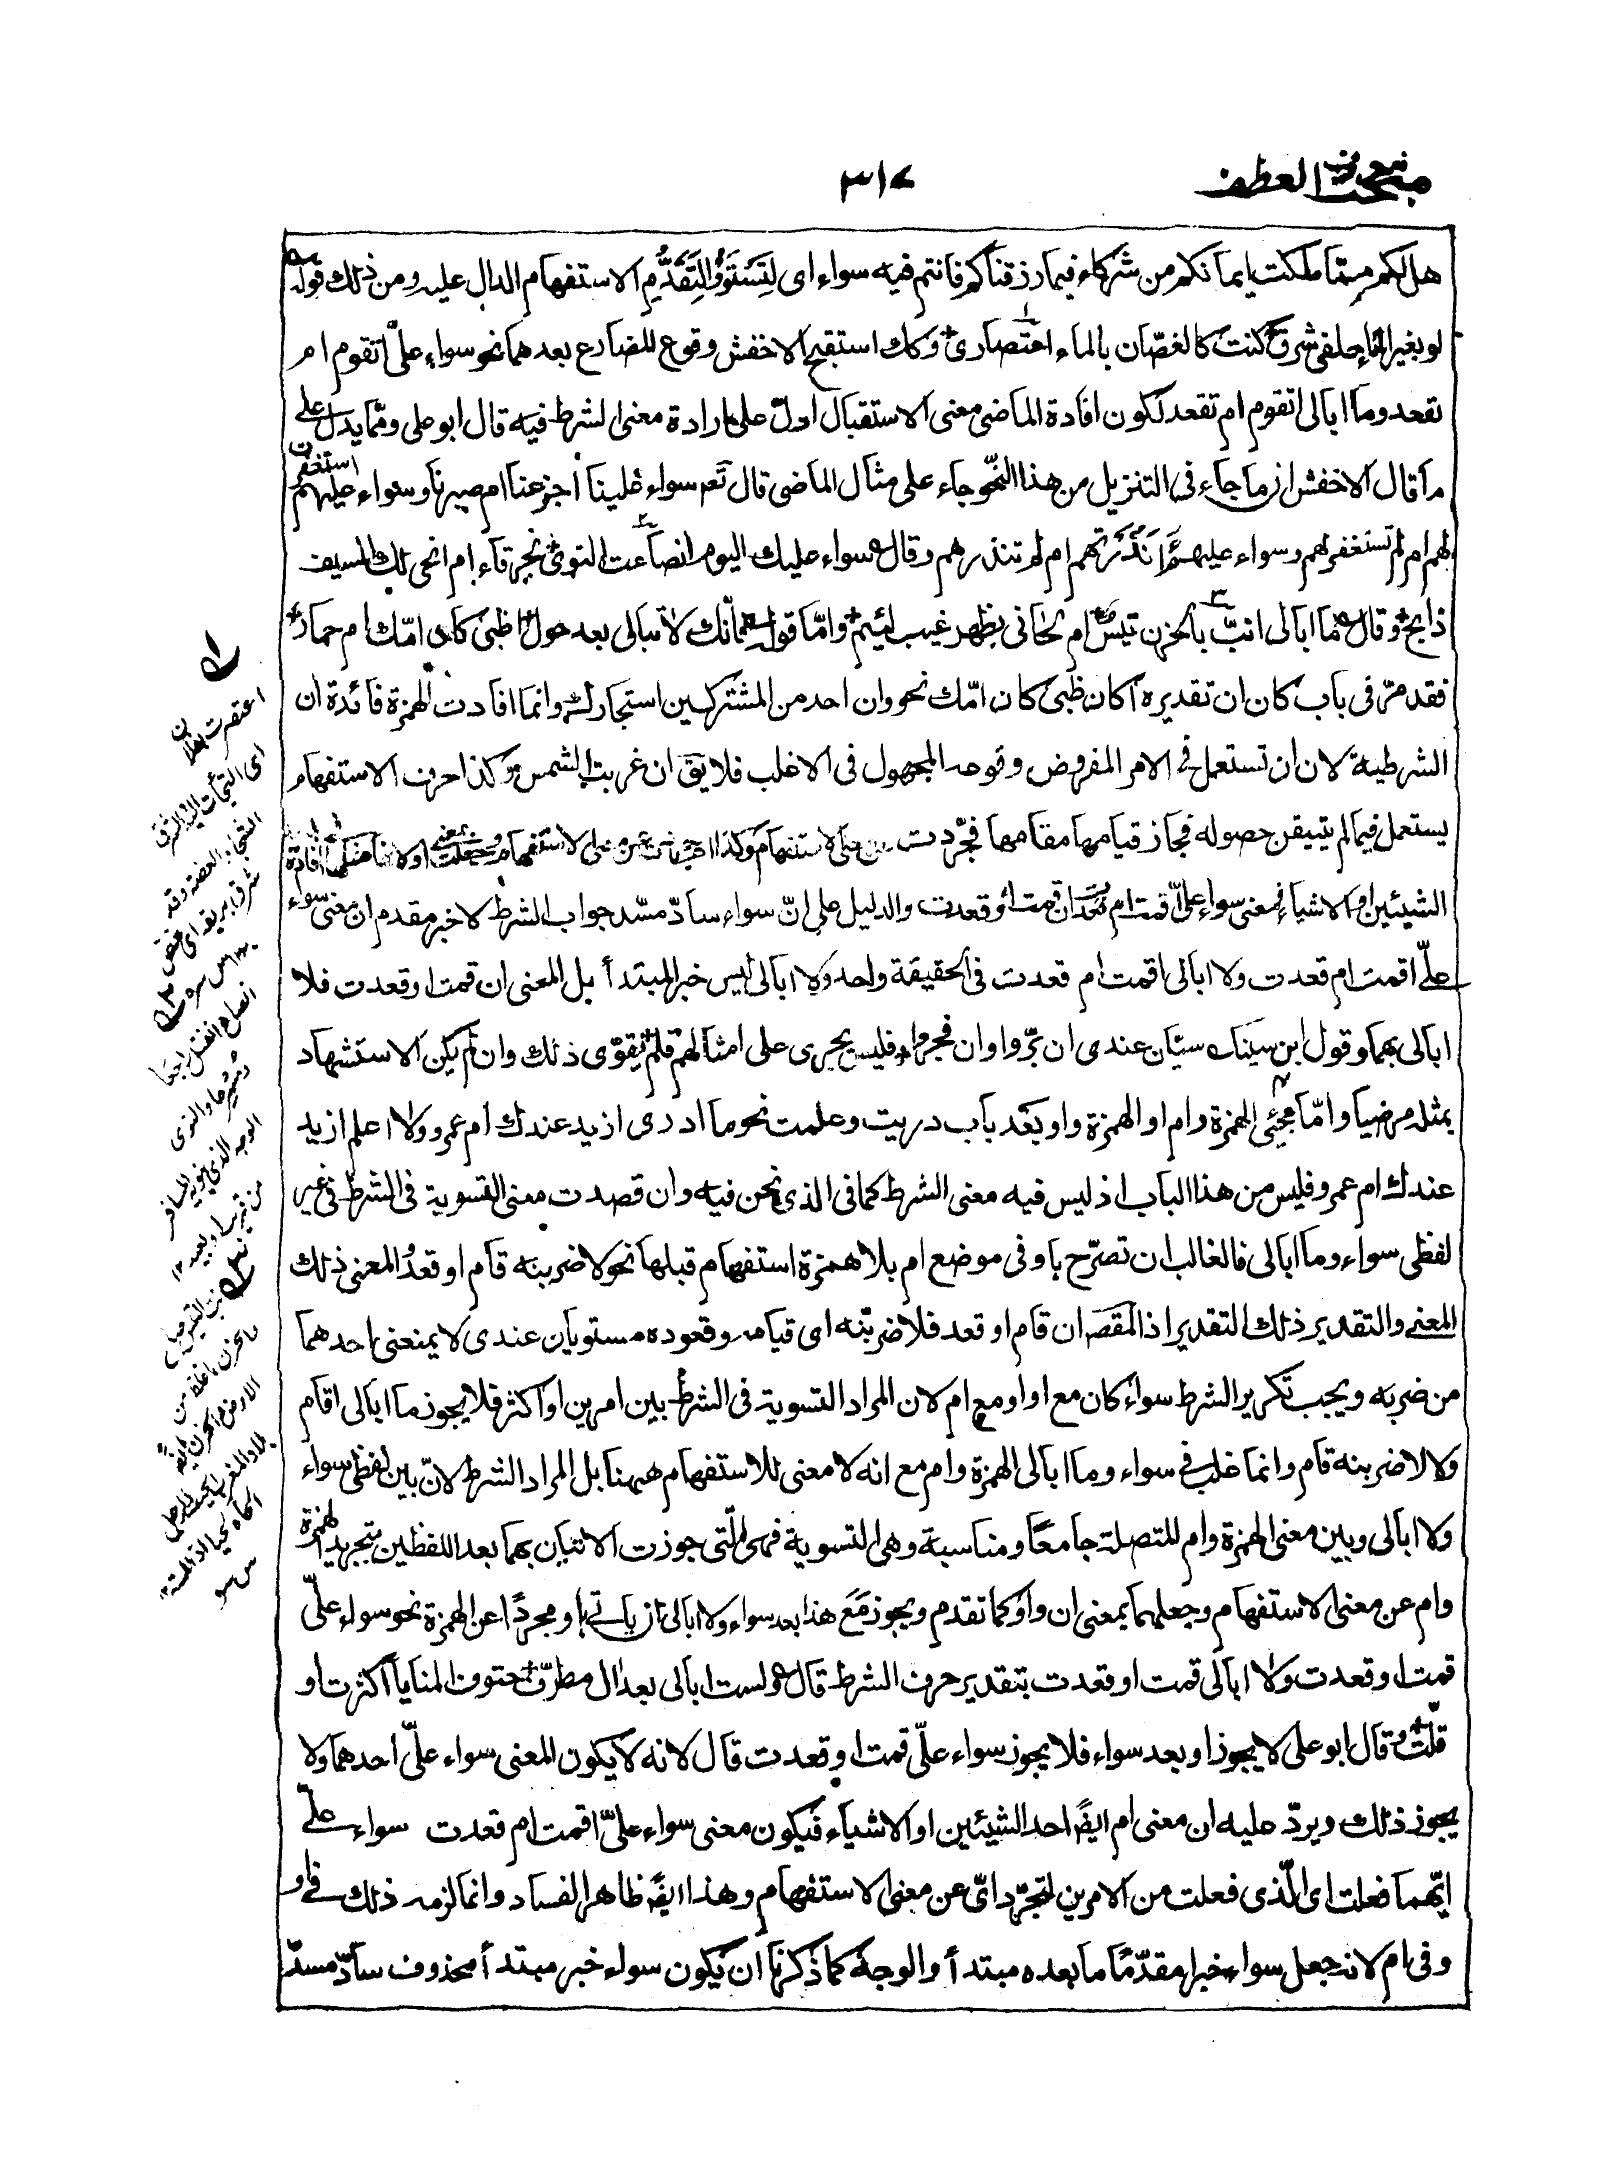 مبحث حروف العطف
٣١٧
هل لكم مما ملكت ايمانكم من شركاء فيما رزقناكم فانتم فيه سواء اى لتستووا لتقدم الاستفهام الدال عليه ومن ذلك قوله
لو بغير الماء حلقى شرق كنت كالغصّان بالماء اعتصارى وكك استقبح الاخفش وقوع المضارع بعدهما نحو سواء علىّ اتقوم ام
تقعد وما ابالى اتقوم ام تقعد لكون افادة الماضى معنى الاستقبال ادلّ على ارادة معنى الشرط فيه قال ابو على وممّا يدل على
ما قال الاخفش ان ما جاء فى التنزيل من هذا النحو جاء على مثال الماضى قال تعم سواء علينا أجزعنا ام صبرنا وسواء عليهم استغفرت
لهم ام لم تستغفر لهم وسواء عليهم ءانذرتهم ام لم تنذرهم وقال سواء عليك اليوم انصاعت النوى بخرقاء ام انحى لك السيف
ذابح وقال ما ابالى انبّ بالحزن تيس ام لحانى بظهر غيب لئيم وامّا قوله فانّك لا تبالى بعد حول اظبى كان امّك ام حمار
فقد مرّ فى باب كان ان تقديره أكان ظبى كان امّك نحو وان احد من المشركين استجارك وانما افادت الهمزة فائدة ان
الشرطية لان ان تستعمل فى الامر المفروض وقوعه المجهول فى الاغلب فلا يق ان غربت الشمس وكذا حرف الاستفهام
يستعمل فيما لم يتيقن حصوله فجاز قيامها مقامها فجرّدت عن معنى الاستفهام وكذا ام جردت عن معنى الاستفهام وجعلت بمعنى او لانها مثلها فى افادة احد
الشيئين او الاشياء فمعنى سواء علىّ اقمت ام قعدت ان قمت او قعدت والدليل على انّ سواء سادّ مسّد جواب الشرط لا خبر مقدم ان معنى سواء
علىّ اقمت ام قعدت ولا ابالى اقمت ام قعدت فى الحقيقة واحد ولا ابالى ليس خبر المبتدأ بل المعنى ان قمت او قعدت فلا
ابالى بهما وقول ابن سينا سيّان عندى ان برّوا وان فجروا فليس يجرى على امثالهم قلم يقوّى ذلك وان لم يكن الاستشهاد
بمثله مرضيا وامّا مجئى الهمزة وام او الهمزة واو بعد باب دريت وعلمت نحو ما ادرى ازيد عندك ام عمرو ولا اعلم ازيد
عندك ام عمرو فليس من هذا الباب اذ ليس فيه معنى الشرط كما فى الذى نحن فيه وان قصدت معنى التسوية فى الشرط فى غير
لفظى سواء وما ابالى فالغالب ان تصرّح باو فى موضع ام بلا همزة استفهام قبلها نحو لاضربنه قام او قعد والمعنى ذلك
المعنى والتقدير ذلك التقدير اذ المقصه ان قام او قعد فلاضربّنه اى قيامه وقعوده مستويان عندى لا يمنعنى احدهما
من ضربه ويجب تكرير الشرط سواء كان مع او او مع ام لان المراد التسوية فى الشرط بين امرين او اكثر فلا يجوز ما ابالى اقام
ولا لاضربنه قام وانما غلب فى سواء وما ابالى الهمزة وام مع انه لا معنى للاستفهام ههنا بل المراد الشرط لانّ بين لفظى سواء
ولا ابالى وبين معنى الهمزة وام المتصلة جامعًا ومناسبة وهى التسوية فهى الّتى جوزت الاتيان بهما بعد اللفظين بتجريد الهمزة
وام عن معنى الاستفهام وجعلهما بمعنى ان واو كما تقدم ويجوز مع هذا بعد سواء ولا ابالى ان ياتى باو مجردًا عن الهمزة نحو سواء علىّ
قمت او قعدت ولا ابالى قمت او قعدت بتقدير حرف الشرط قال ولست ابالى بعد ال مطرّف حتوف المنايا أكثرت او
قلّت وقال ابو على لا يجوز او بعد سواء فلا يجوز سواء علىّ قمت او قعدت قال لانه لا يكون المعنى سواء علىّ احدهما ولا
يجوز ذلك ويردّ عليه ان معنى ام ايضً احد الشيئين او الاشياء فيكون معنى سواء علىّ اقمت ام قعدت سواء علىّ
ايّهما فعلت اى الّذى فعلت من الامرين لتجرّد اىّ عن معنى الاستفهام وهذا ايضً ظاهر الفساد وانما لزمه ذلك فى او
وفى ام لانه جعل سواء خبرا مقدّمًا ما بعده مبتدأ والوجه كما ذكرنا ان يكون سواء خبر مبتدأ محذوف سادّ مسدّ
اعتصرت بفلان
اى التجأت اليه والشرق
شرق بريقه اى غص
انصاع انفتل راجعا
الوجه الذى ينويه المسافر
من قرب او بعد ١٢